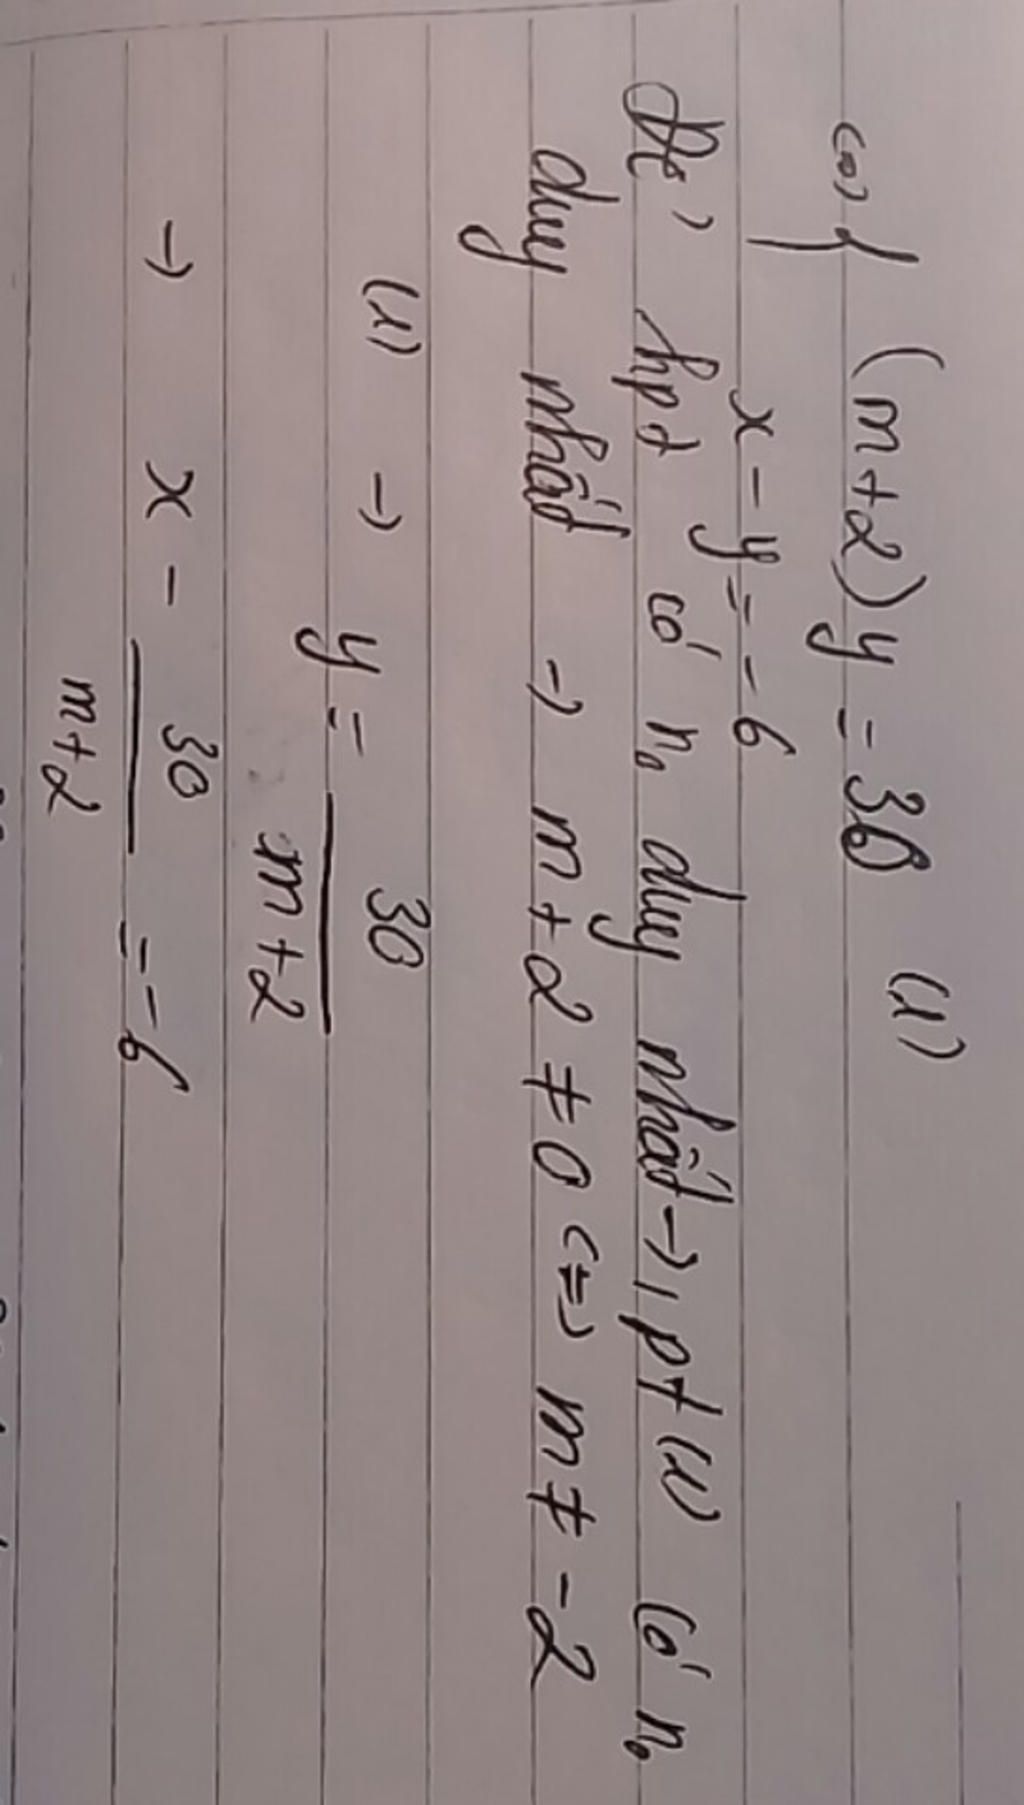 <=> { (m+2)y = 30 (1)
x - y = -6
Để hpt có n₀ duy nhất → pt (1) có n₀
duy nhất → m+2 ≠ 0 <=> m ≠ -2
(1) → y = 30/(m+2)
→ x - 30/(m+2) = -6